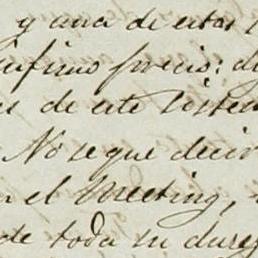 y una de estas
infimo precio: de
s de este sistem
No se que deci
n el Meeting,
de toda su dure